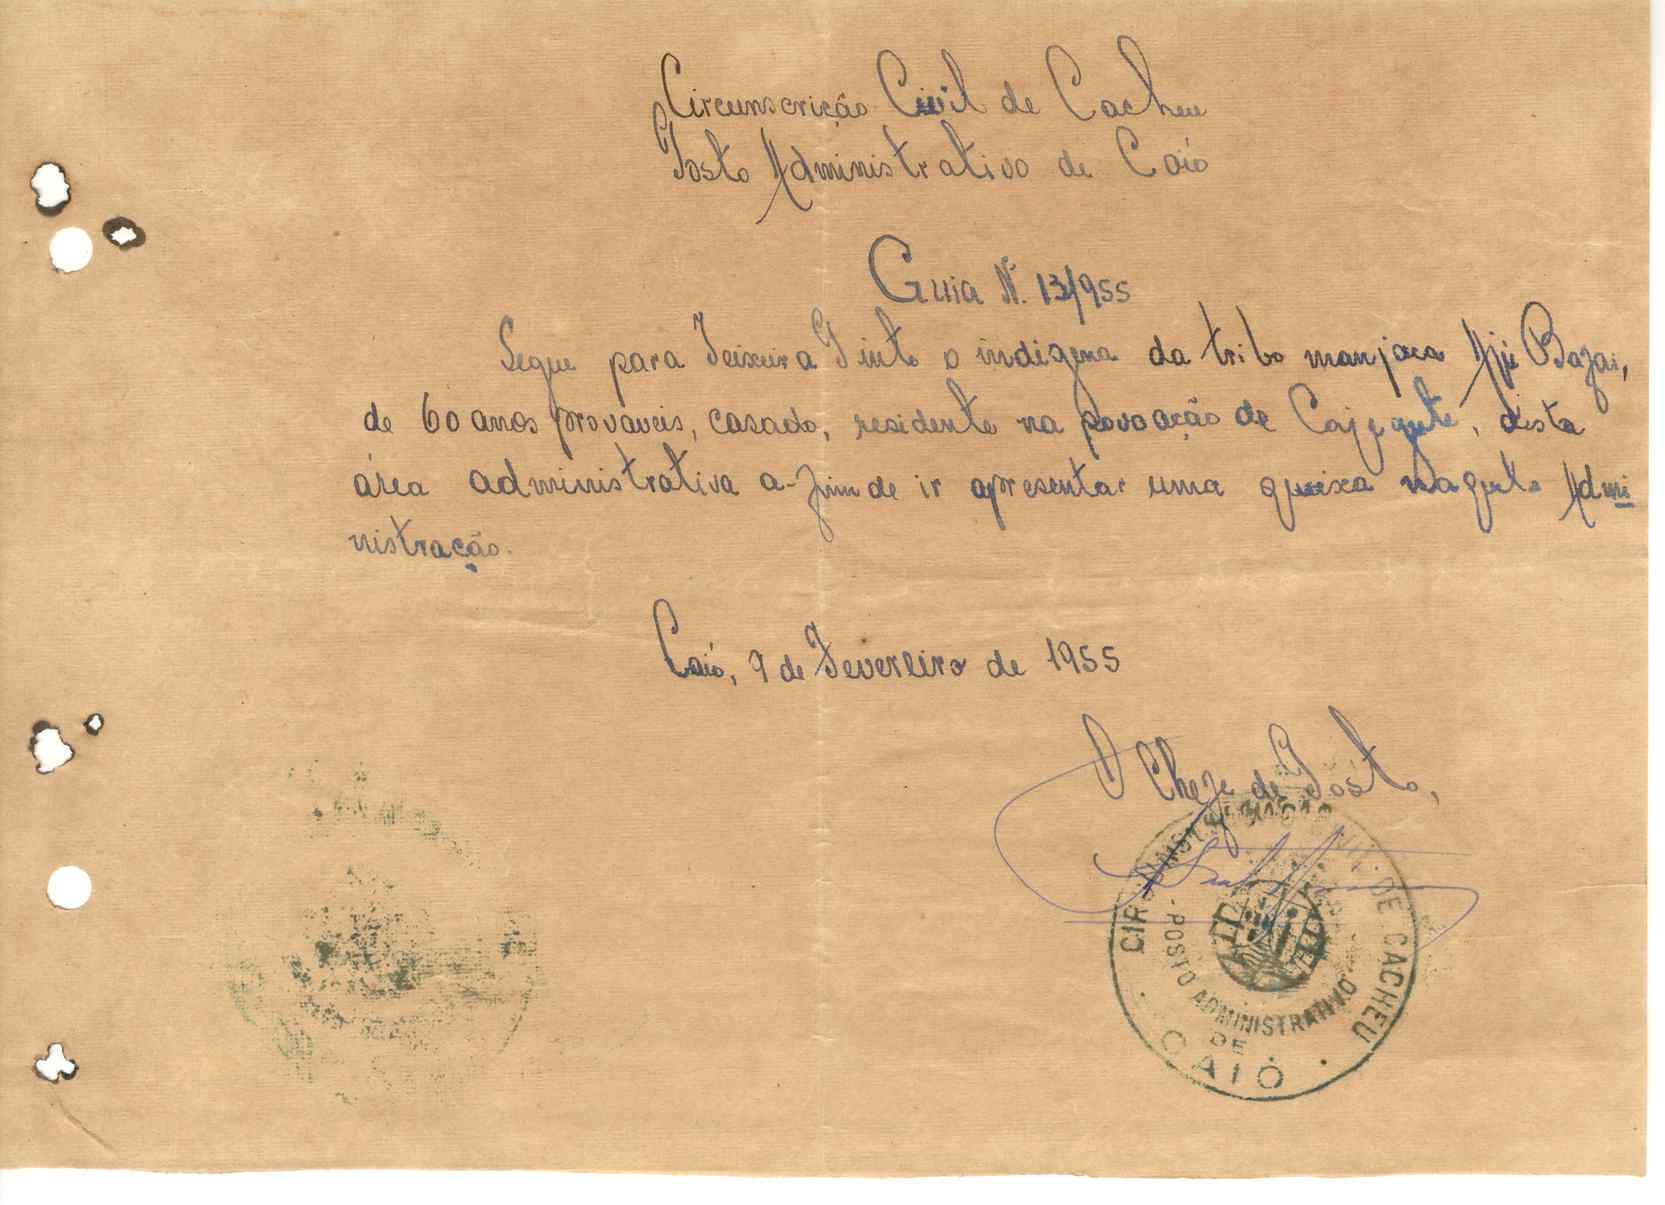 Circunscrição Civil de Cacheu
Posto Administrativo de Caió
Guia N. 13/955
Segue para Teixeira Pinto o indigena da tribo manjaca Bajai,
de 60 anos provaveis, casado, residente na povoação de Cajegute, desta
área administrativa a-fim de ir apresentar uma queixa naquela Admi
nistração.
Caió, 9 de Fevereiro de 1955
O Chefe de Posto,
CIRCUNSCRIÇÃO CIVIL DE CACHEU
- POSTO ADMINISTRATIVO -
DE
CAIÓ